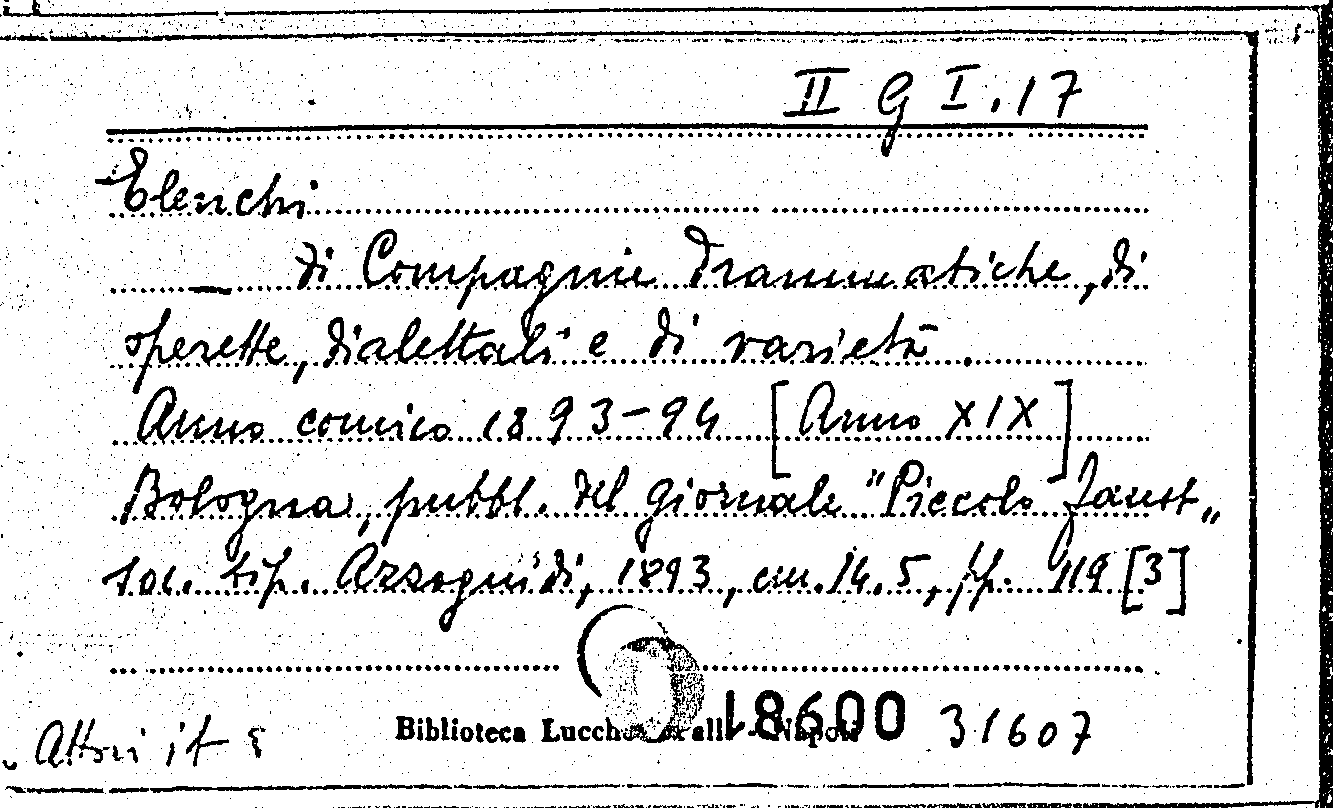 II G I.17
Elenchi
— di Compagnie Drammatiche, di
operette, dialettali e di varietà.
Anno comico 1893-94 [Anno XIX]
Bologna, pubbl. del giornale "Piccolo Faust„
soc. tip. Azzoguidi, 1893, cm.14.5, pp. 119 [3]
Biblioteca Lucchesi Palli - Napoli 18600 31607
Attori it